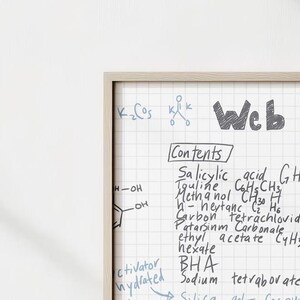 K₂Cos
K K
O O
Web
Contents
Salicylic acid
Iquline C₆H₅CH₃
Methanol CH₃0 H
n- heptane C₂ H₆
Carbon tetrachlorid
Patarsinm Carbonale
ethyl acetate C₄H
hexate
BHA
Sodium tetraborate
OH
OH
ctivator
hydrated